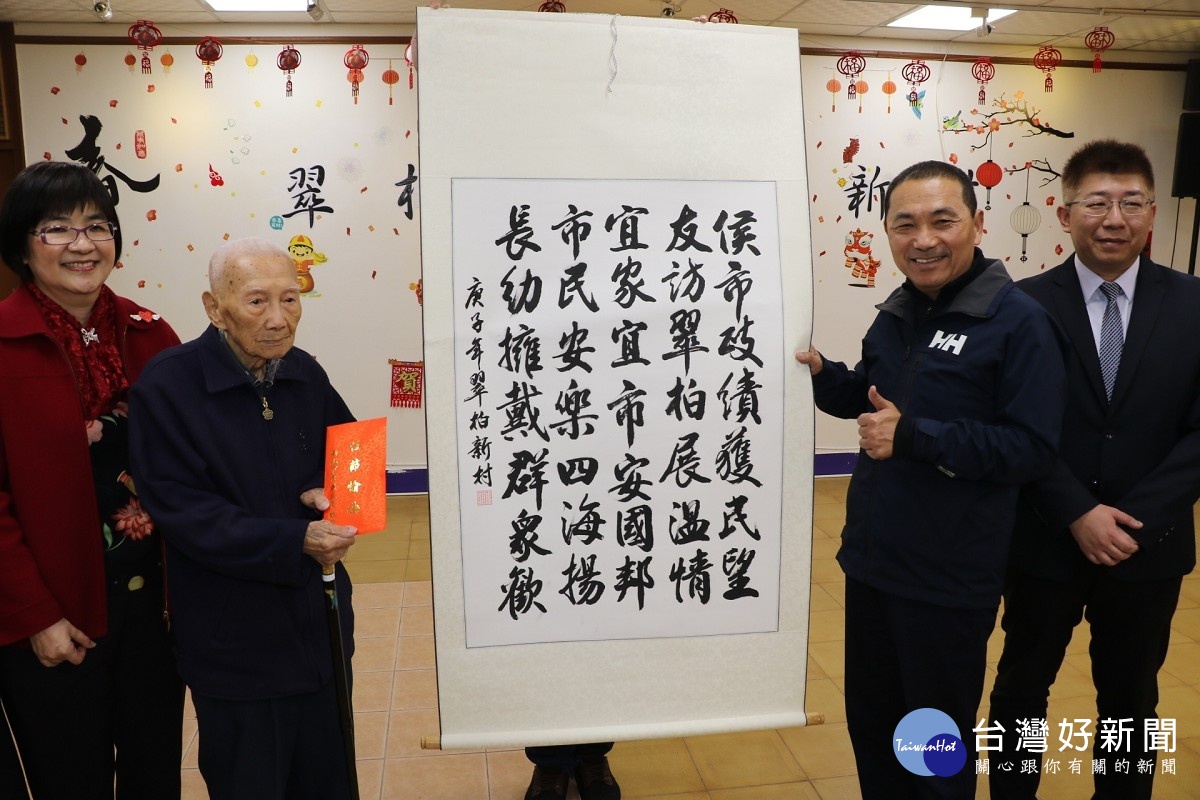 侯市政績獲民望
友訪翠柏展溫情
宜家宜市安國邦
市民安樂四海揚
長幼擁戴群衆歡
庚子年翠柏新村
春
翠
新
賀
HH
TaiwanHot
台灣好新聞
關心跟你有關的新聞